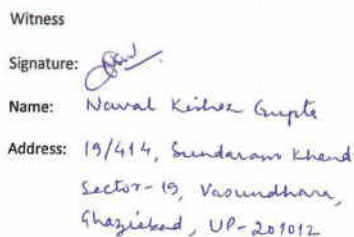 Witness
Signature:
Name: Nawal Kishor Gupta
Address: 19/414, Sundaram Khand
Sector-19, Vasundhara,
Ghaziabad, UP-201012